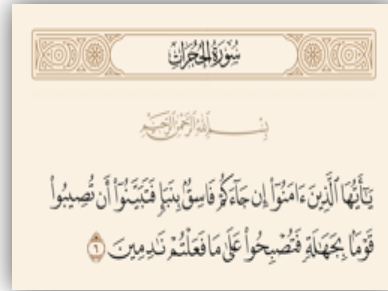 سُورَةُ الحُجُرَاتِ
بِسْمِ ٱللَّهِ ٱلرَّحْمَٰنِ ٱلرَّحِيمِ
يَٰٓأَيُّهَا ٱلَّذِينَ ءَامَنُوٓا۟ إِن جَآءَكُمْ فَاسِقٌۢ بِنَبَإٍ فَتَبَيَّنُوٓا۟ أَن تُصِيبُوا۟
قَوْمًۢا بِجَهَٰلَةٍ فَتُصْبِحُوا۟ عَلَىٰ مَا فَعَلْتُمْ نَٰدِمِينَ ٦